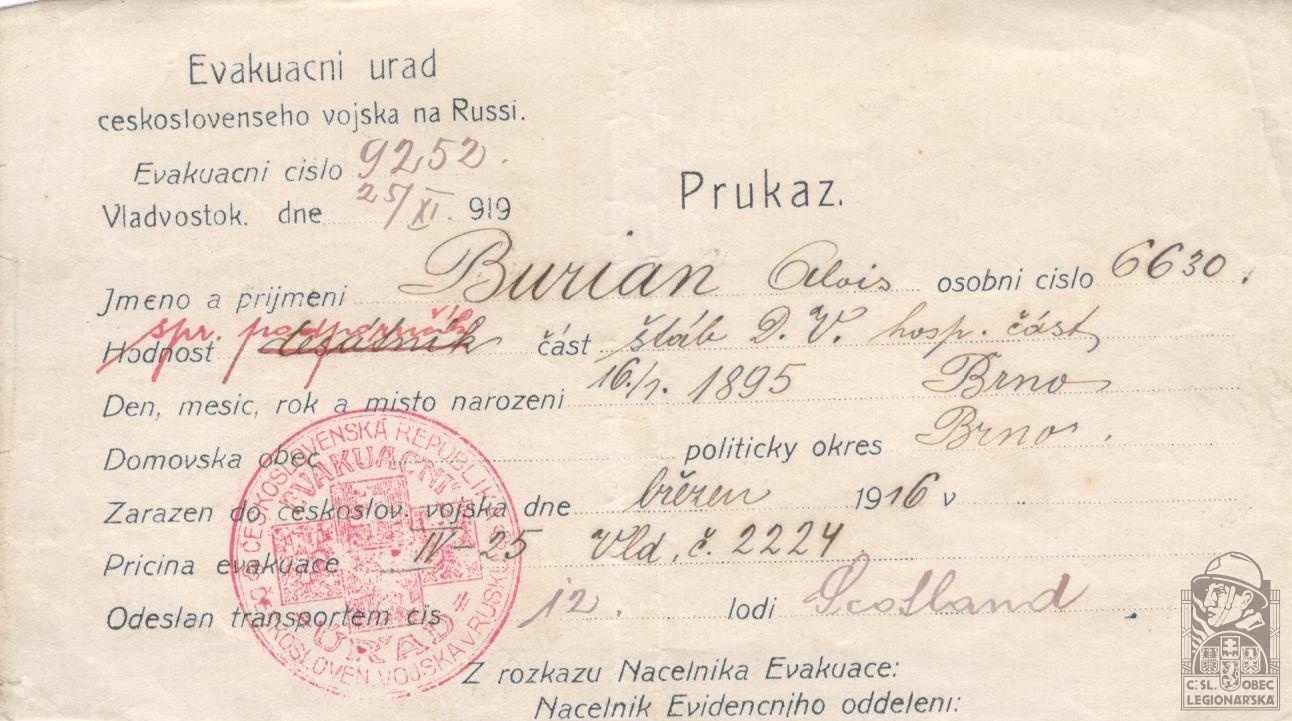 Evakuacni urad
ceskoslovenseho vojska na Russi.
Evakuacni cislo 9252.
Vladvostok. dne 25/XI. 919
Prukaz.
Jmeno a prijmeni Burian Alois osobni cislo 6630.
spr. podporučík
Hodnost desátník část štáb D. V. hosp. část
Den, mesic, rok a misto narozeni 16./7. 1895 Brno
Domovska obec politicky okres Brno.
Zarazen do ceskoslov. vojska dne březen 1916 v
Pricina evakuace IV-25 Vld, č. 2224.
Odeslan transportem cis 12. lodi Scotland
Z rozkazu Nacelnika Evakuace:
Nacelnik Evidencniho oddeleni:
ČESKOSLOVENSKÁ REPUBLIKA
EVAKUAČNÍ
ÚŘAD
VOJSKA V RUSKU
Č:SL. OBEC
LEGIONÁŘSKÁ